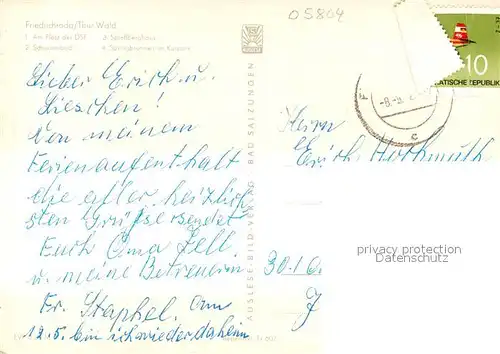 Friedrichroda/Thür. Wald
1 Am Platz der DSF 3 Sportlberghaus
2 Schwimmbad 4 Springbrunnen im Kurpark
05864
10
TISCHE REPUBLIK
-8.-9.
c
Lieber Erich u.
Lieschen!
Von meinem
Ferienaufenthalt
die aller herzlich-
sten Grüße sendet
Euch Oma Zell
u. meine Betreuerin
Fr. Stephel. Am
12.5. bin ich wieder daheim
AUSLESE-BILD-VERLAG BAD SALZUNGEN
Herrn
Erich Hothmuth
privacy protection
Datenschutz
30.10.